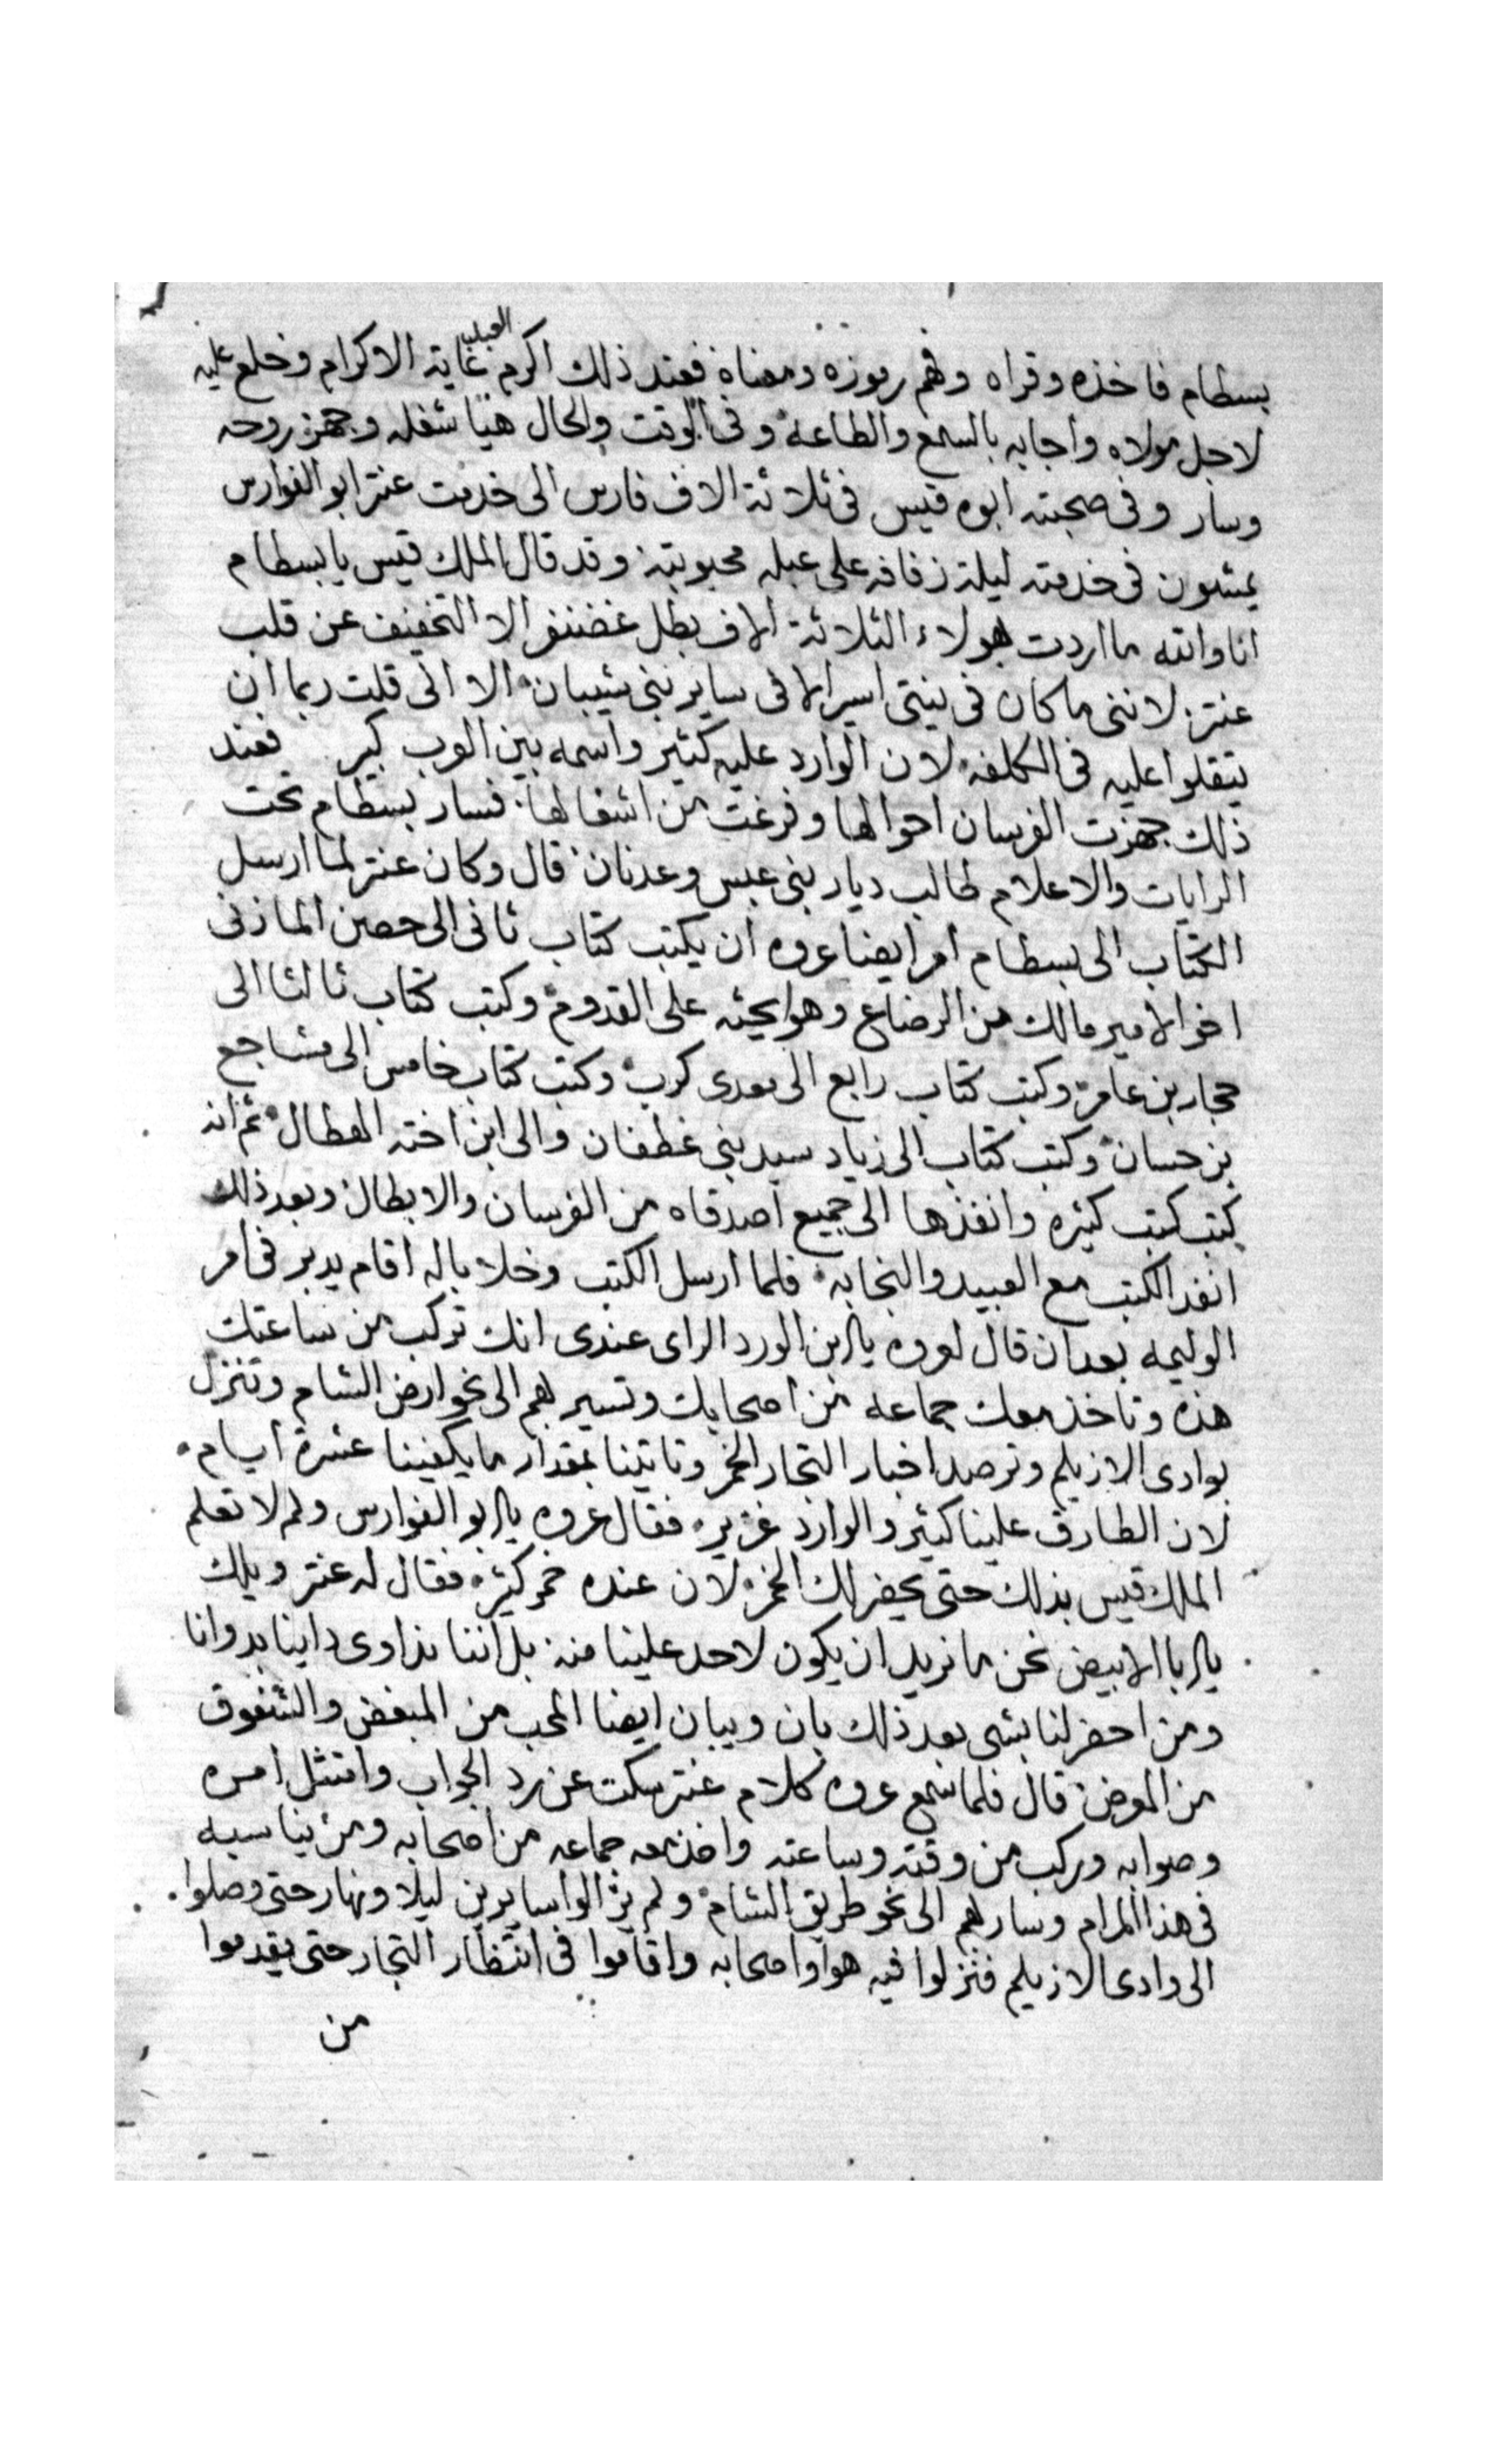 بسطام فاخذه وقراه وفهم رموزه ومعناه فعند ذلك اكرم العبد غاية الاكرام وخلع عليه
لاجل مولاه واجابه بالسمع والطاعه وفى الوقت والحال هيا شغله وجهز روحه
وسار وفى صحبته ابوه قيس فى ثلاثة الاف فارس الى خدمت عنتر ابو الفوارس
يمشون فى خدمته ليلة زفافه على عبله محبوبته وقد قال الملك قيس يا بسطام
انا والله ما اردت هولاء الثلاثة الاف بطل غضنفر الا التخفيف عن قلب
عنتر لاننى ما كان فى نيتى اسير الا فى ساير بنى شيبان الا انى قلت ربما ان
يتقلوا عليه فى الكلفه لان الوارد عليه كثير واسمه بين العرب كبير فعند
ذلك جهزت الفرسان احوالها وفرغت من اشغالها فسار بسطام تحت
الرايات والاعلام طالب ديار بنى عبس وعدنان قال وكان عنتر لما ارسل
الكتاب الى بسطام امر ايضا عروه ان يكتب كتاب ثانى الى حصن المازنى
اخو الامير مالك من الرضاع وهو يحثه على القدوم وكتب كتاب ثالثا الى
حجار بن عامر وكتب كتاب رابع الى معدى كرب وكتب كتاب خامس الى مشاجع
بن حسان وكتب كتاب الى زياد سيد بنى غطفان والى ابن اخته الهطال ثم انه
كتب كتب كثيره وانفذها الى جميع اصدقاه من الفرسان والابطال وبعد ذلك
انفد الكتب مع العبيد والنجابه فلما ارسل الكتب وخلا باله اقام يدبر فى امر
الوليمه بعد ان قال لعروه يا بن الورد الراى عندى انك تركب من ساعتك
هذه وتاخذ معك جماعه من اصحابك وتسير بهم الى نحو ارض الشام وتنزل
بوادى الازيلم وترصد اخبار التجار الخمر وتاتينا بمقدار ما يكفينا عشرة ايام
لان الطارق علينا كثير والوارد غزير فقال عروه يا ابو الفوارس ولم لا تعلم
الملك قيس بذلك حتى يحضر لك الخمر لان عنده خمر كثيره فقال له عنتر ويلك
يا ابا الابيض نحن ما نريد ان يكون لاحد علينا منه بل اننا نداوى داينا بدوانا
ومن احضر لنا بشى بعد ذلك بان ويبان ايضا المحب من المبغض والشفوق
من المعرض قال فلما سمع عروه كلام عنتر سكت عن رد الجواب وامتثل امره
وصوابه وركب من وقته وساعته واخذ معه جماعه من اصحابه ومن يناسبه
فى هذا المرام وسار بهم الى نحو طريق الشام ولم يزالوا سايرين ليلا ونهار حتى وصلوا
الى وادى الازيلم فنزلوا فيه هوا واصحابه واقاموا فى انتظار التجار حتى يقدموا
من